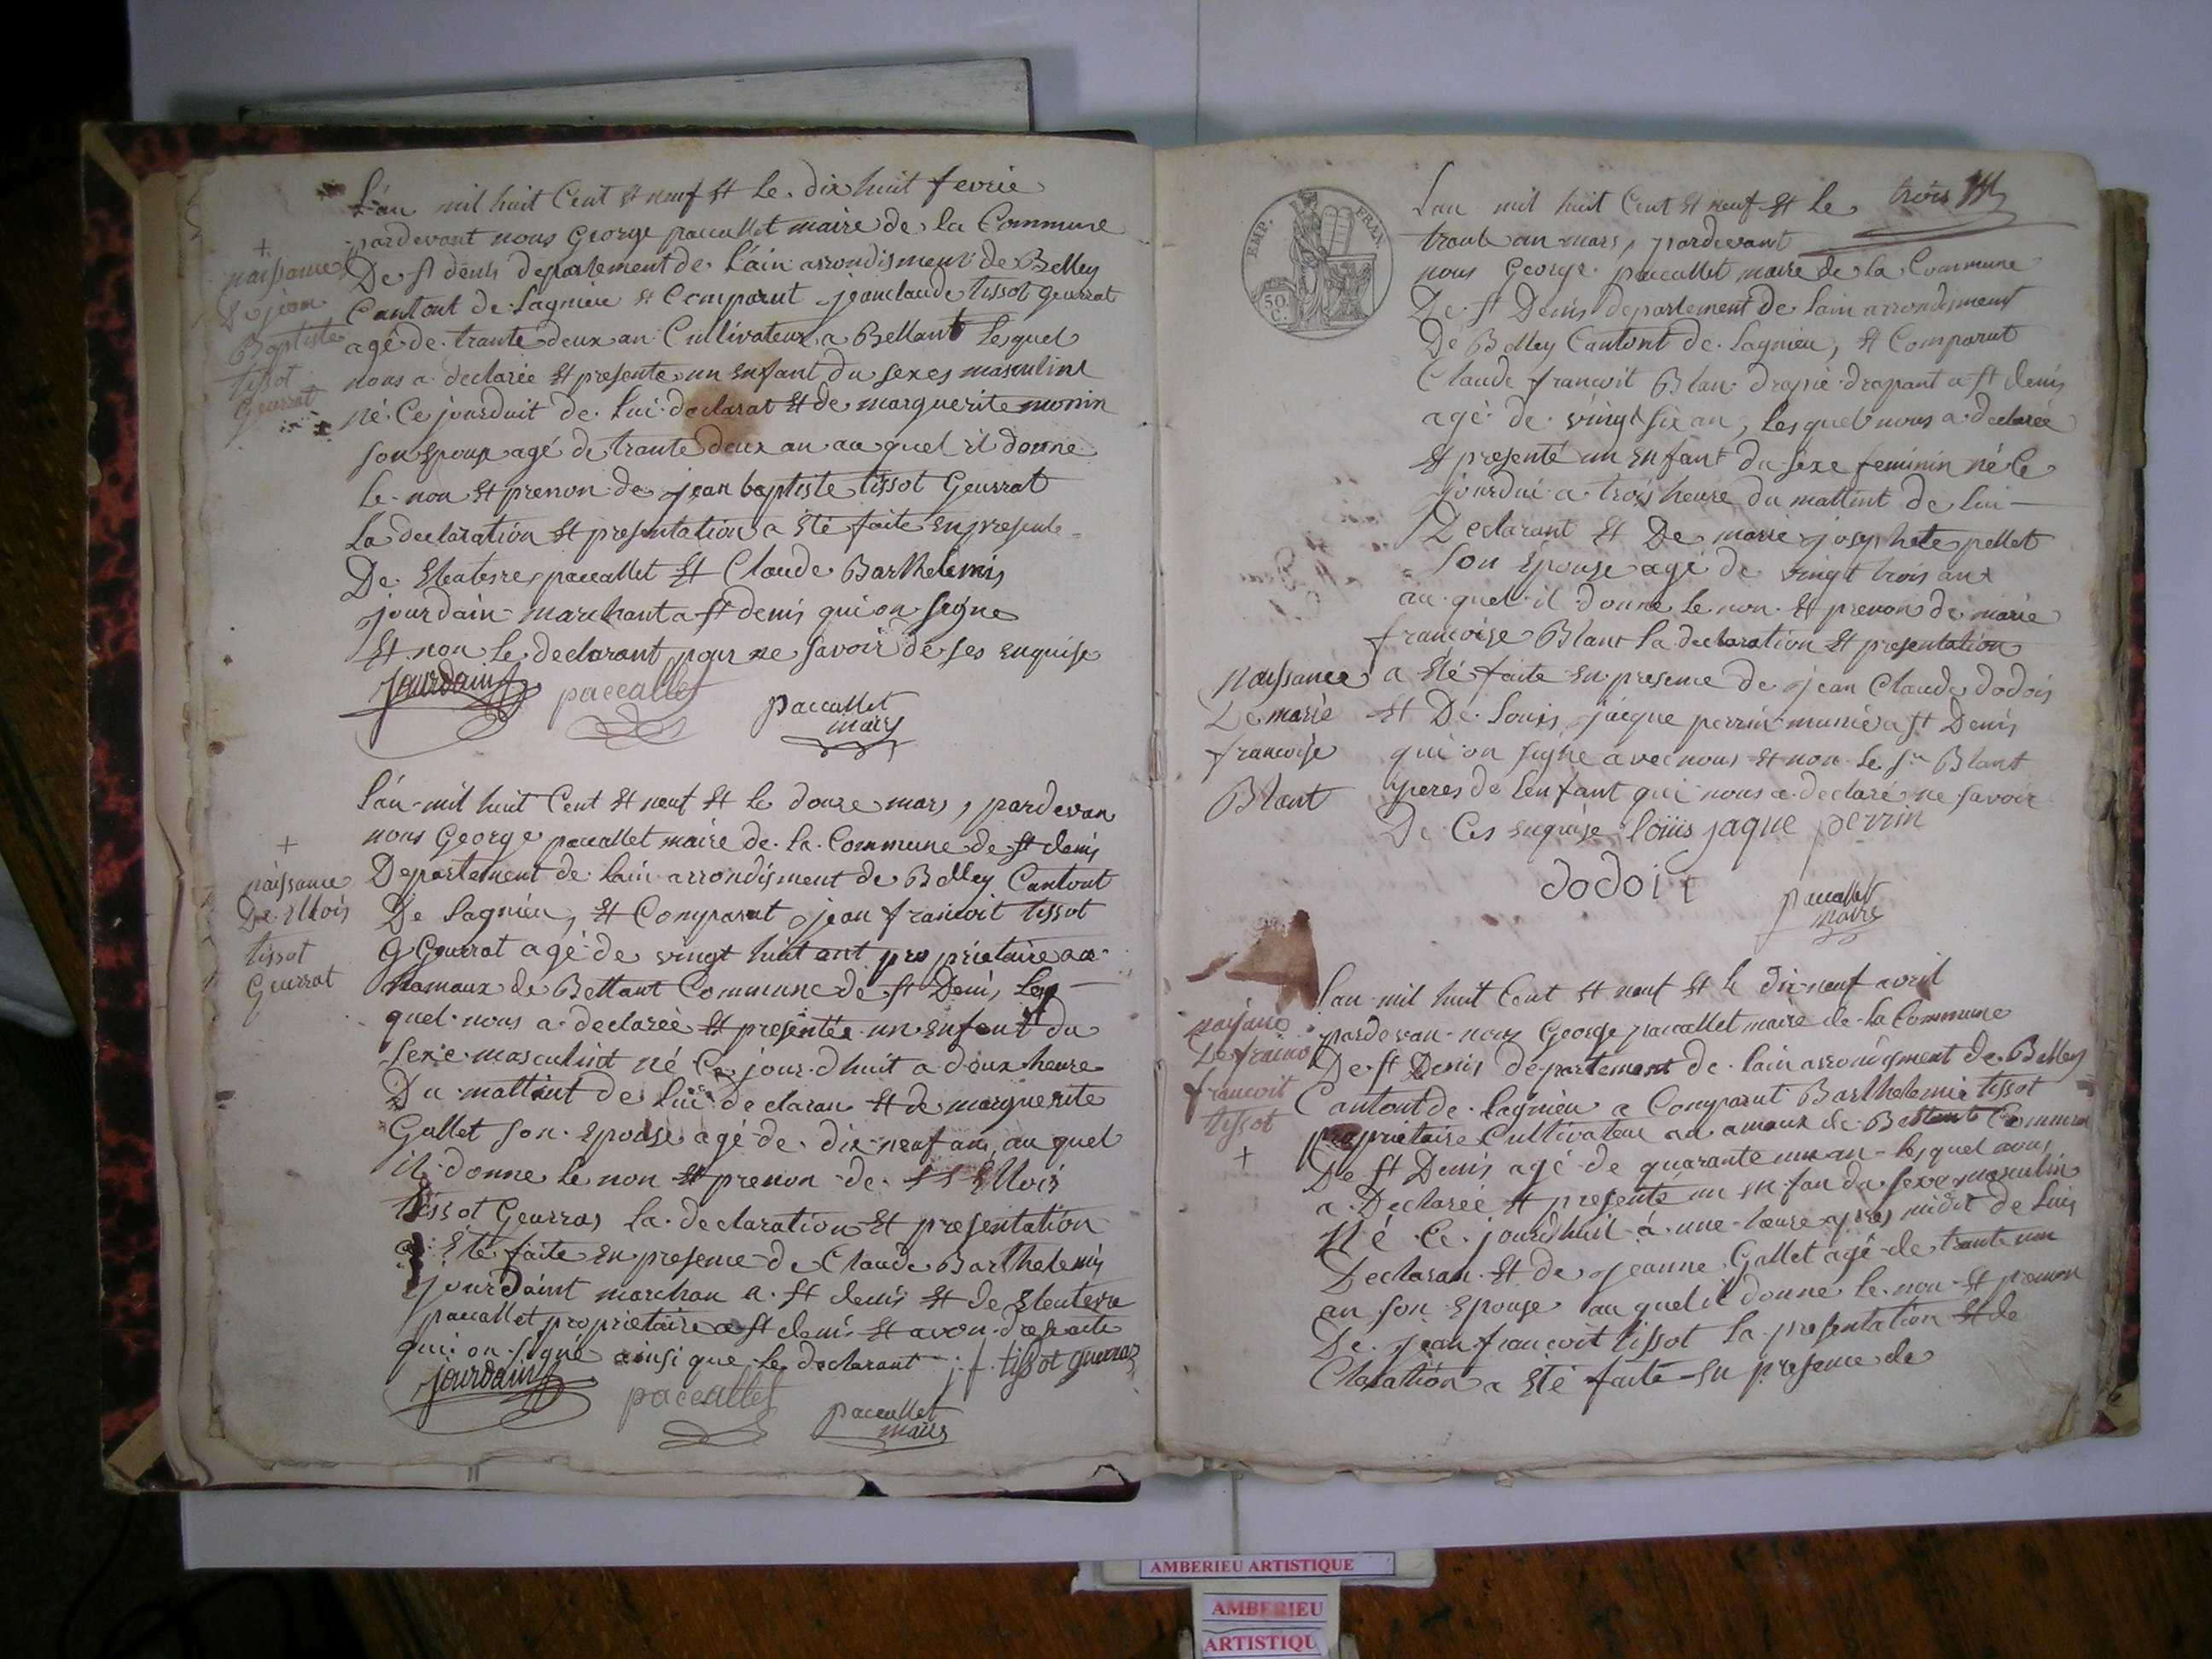 L'an mil huit Cent et neuf et le dix huit fevrie
pardevant nous George paccallet maire de la Commune
De st denis departement de L'ain arrondisment de Belley
Cantont de Lagnieu et Comparut jeanclaude tissot geurrat
agé de trante deux an Cultivateur a Bettant Lequel
nous a declarée et presente un enfant du sexes masculint
né Ce jourduit de Lui declarat et de marguerite monin
son epouse agé de trante deux an au quel il donne
Le non et prenon de jean baptiste tissot Geurrat
La declaration et presentation a été faite en presente
De Eleatere paccallet et Claude Barthelemis
jourdain marchant a st denis qui on signe
et non le declarant pour ne savoir de ses enquise
jourdaint paccallet paccallet
maire
+
naissance
De jean
Baptiste
tissot
Geurrat
L'an mil huit Cent et neuf et le douze mars, pardevan
nous George paccallet maire de la Commune de st denis
Departement de lain arrondisment de Belley Cantont
De Lagnieu, et Comparut jean francoit tissot
G Geurrat agé de vingt huit ant proprietaire aa
hamaux de Bettant Commune de st Denis Le
quel nous a declarée et presentée un enfant du
sexe masculint né Ce jour dhuit a deux heure
Du mattint de lui declaran et de marguerite
Gallet son epouse agé de dix neuf an, au quel
il donne le non et prenon de Ellois
tissot Geurras la declaration et presentation
a été faite en presence de Claude Barthelemis
jourdaint marchan a st denis et de Eleutere
paccallet proprietaire a st denis et avon
qui on signé ainsi que le declarant j. f. tissot guerraz
jourdaint paccallet paccallet
maire
+
naissance
De Ellois
tissot
Geurrat
EMP. FRAN.
50
C.
L'an mil huit Cent et neuf et le trois
trante an mars, pardevant
nous George paccallet maire de la Commune
De st Denis departement de lain arrondisment
De Belley Cantont de Lagnieu, et Comparut
Claude francoit Blan drapié drapant a st denis
agé de vingt six an, Lesquel nous a declarée
et presenté un enfant du sexe feminin né Ce
jourdui a trois heure du mattint de lui
Declarant et De marie josephete pellet
son épouse agé de vingt trois ant
au quel il donne le non et prenon de marie
francoise Blant la declaration et presentation
a été faite en presence de jean Claude dodois
et De Louis jacque perrin munié a st Denis
qui on signe avec nous et non le sr Blant
peres de lenfant qui nous a declaré ne savoir
De Ces enquise louis jaque perrin
dodoit paccallet
maire
naissance
De marie
francoise
Blant
L'an mil huit Cent et neuf et le dix neuf avril
pardevan nous George paccallet maire de la Commune
De st Denis departement de lain arrondisment de Belley
Cantont de Lagnieu a Comparut Barthelemie tissot
proprietaire Cultivateur au amaux de Bettant Commun
De st Denis agé de quarante un an lesquel nous
a Declarée et presenté un en fan du sexe masculin
Né Ce jourdhuit á une heure apres midit de luis
Declaran et de jeanne Gallet agé de trante un
an son epouse au quel il donne le non et prenon
De jean francoit tissot la presentation et de
Claration a été faite en presence de
francoit
tissot
+
AMBERIEU ARTISTIQUE
AMBERIEU
ARTISTIQU